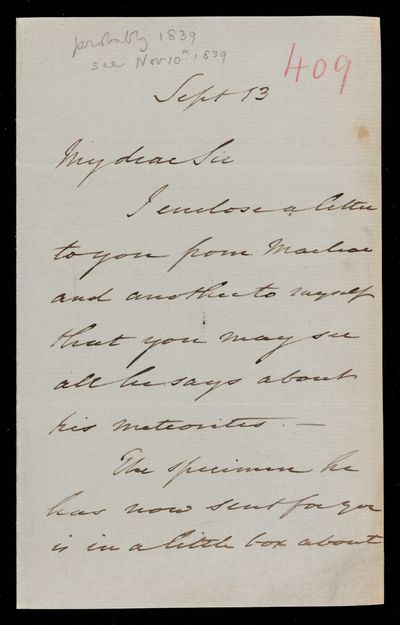 probably 1839
see Nov 10th. 1839
409
Sept 13
My dear Sir
I enclose a letter
to you from Maclear
and another to myself
that you may see
all he says about
his meteorites. —
The specimen he
has now sent for you
is in a little box about